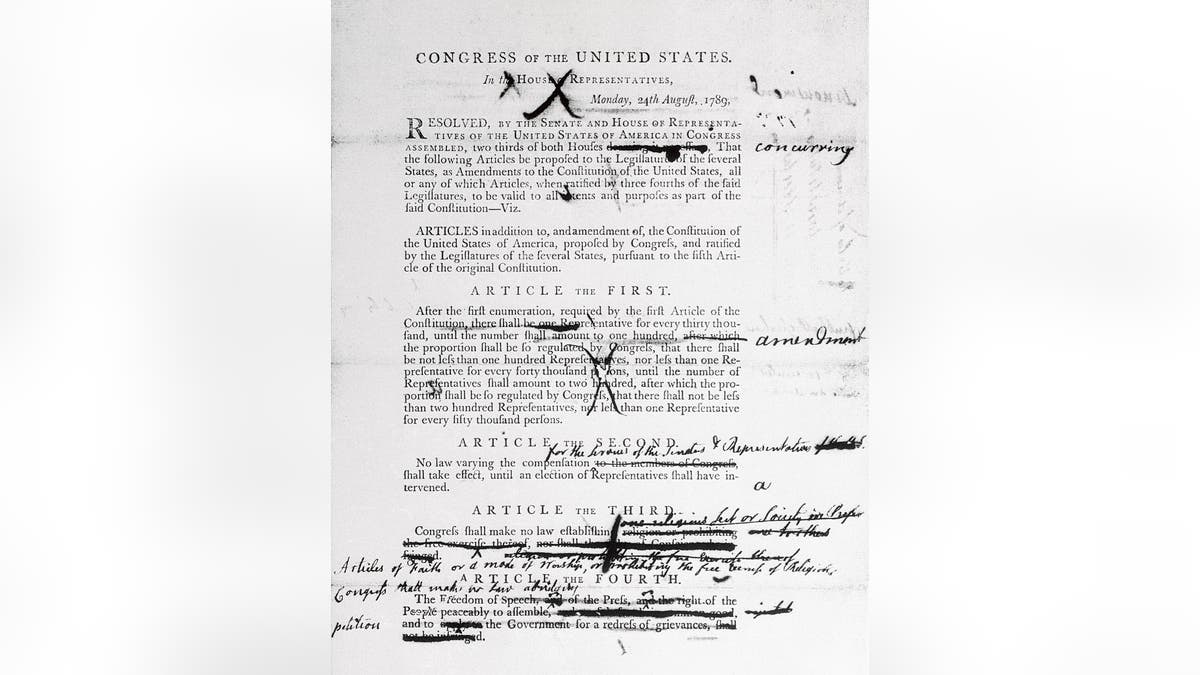 CONGRESS OF THE UNITED STATES.
In the HOUSE of REPRESENTATIVES,
Monday, 24th Auguſt, 1789,
RESOLVED, BY THE SENATE AND HOUSE OF REPRESENTA-
TIVES OF THE UNITED STATES OF AMERICA IN CONGRESS
ASSEMBLED, two thirds of both Houſes deeming it neceſſary, That
concurring
the following Articles be propoſed to the Legiſlatures of the ſeveral
States, as Amendments to the Conſtitution of the United States, all
or any of which Articles, when ratified by three fourths of the ſaid
Legiſlatures, to be valid to all intents and purpoſes as part of the
ſaid Conſtitution—Viz.
ARTICLES in addition to, and amendment of, the Conſtitution of
the United States of America, propoſed by Congreſs, and ratified
by the Legiſlatures of the ſeveral States, purſuant to the fifth Arti-
cle of the original Conſtitution.
ARTICLE THE FIRST.
After the firſt enumeration, required by the firſt Article of the
Conſtitution, there ſhall be one Repreſentative for every thirty thou-
ſand, until the number ſhall amount to one hundred, after which
amendment
the proportion ſhall be ſo regulated by Congreſs, that there ſhall
be not leſs than one hundred Repreſentatives, nor leſs than one Re-
preſentative for every forty thouſand perſons, until the number of
Repreſentatives ſhall amount to two hundred, after which the pro-
portion ſhall be ſo regulated by Congreſs, that there ſhall not be leſs
than two hundred Repreſentatives, nor leſs than one Repreſentative
for every fifty thouſand perſons.
ARTICLE THE SECOND.
for the service of the Senate & Representatives
No law varying the compenſation to the members of Congreſs,
ſhall take effect, until an election of Repreſentatives ſhall have in-
tervened.
a
ARTICLE THE THIRD.
one religious Sect or Society in
Congreſs ſhall make no law eſtabliſhing religion or prohibiting
to others
the free exerciſe thereof, nor ſhall the
fringed.
Articles of Faith or a mode of Worship, or prohibiting the free Exercise of Religion,
ARTICLE THE FOURTH.
Congress shall make no Law abridging
The Freedom of Speech, and of the Preſs, and the right of the
People peaceably to aſſemble,
petition
and to the Government for a redreſs of grievances, ſhall
not be infringed.